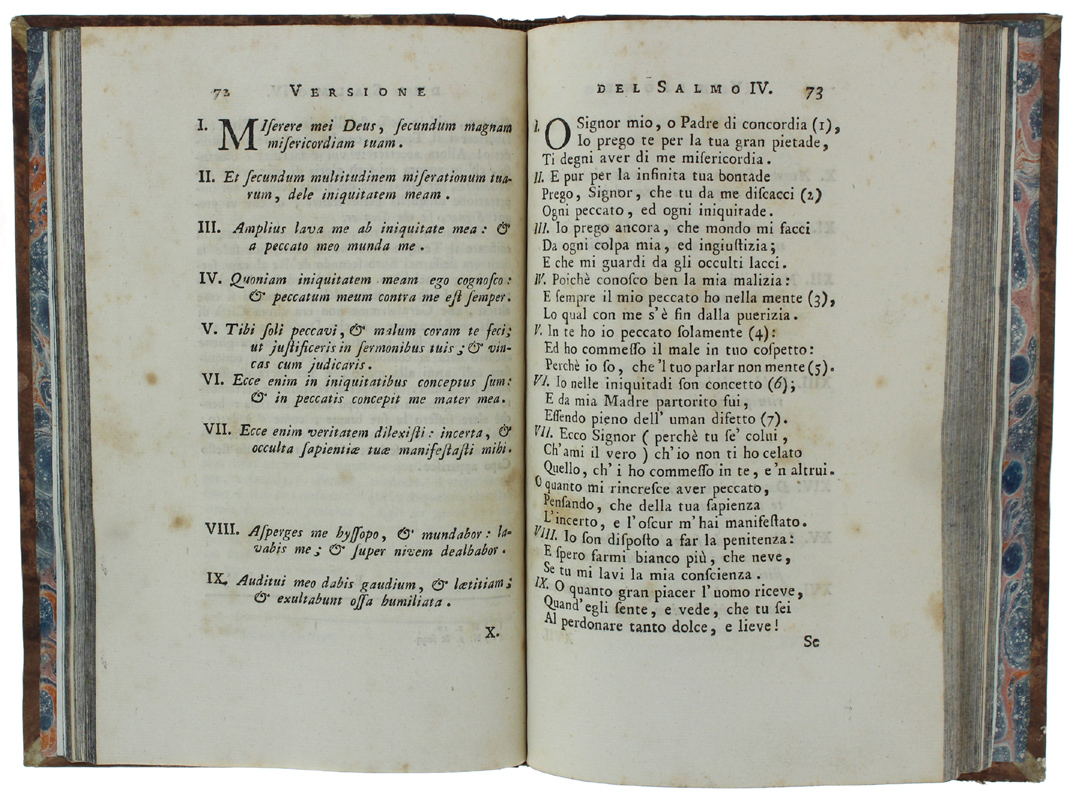 72 VERSIONE
I. MIſerere mei Deus, ſecundum magnam
miſericordiam tuam.
II. Et ſecundum multitudinem miſerationum tua-
rum, dele iniquitatem meam.
III. Amplius lava me ab iniquitate mea: &
a peccato meo munda me.
IV. Quoniam iniquitatem meam ego cognoſco:
& peccatum meum contra me eſt ſemper.
V. Tibi ſoli peccavi, & malum coram te feci;
ut juſtificeris in ſermonibus tuis; & vin-
cas cum judicaris.
VI. Ecce enim in iniquitatibus conceptus ſum:
& in peccatis concepit me mater mea.
VII. Ecce enim veritatem dilexiſti: incerta, &
occulta ſapientiæ tuæ manifeſtaſti mihi.
VIII. Aſperges me hyſſopo, & mundabor: la-
vabis me; & ſuper nivem dealbabor.
IX. Auditui meo dabis gaudium, & lætitiam;
& exultabunt oſſa humiliata.
X.
DEL SALMO IV. 73
I. O Signor mio, o Padre di concordia (1),
Io prego te per la tua gran pietade,
Ti degni aver di me miſericordia.
II. E pur per la infinita tua bontade
Prego, Signor, che tu da me diſcacci (2)
Ogni peccato, ed ogni iniquitade.
III. Io prego ancora, che mondo mi facci
Da ogni colpa mia, ed ingiuſtizia;
E che mi guardi da gli occulti lacci.
IV. Poichè conoſco ben la mia malizia:
E ſempre il mio peccato ho nella mente (3),
Lo qual con me s'è fin dalla puerizia.
V. In te ho io peccato ſolamente (4):
Ed ho commeſſo il male in tuo coſpetto:
Perchè io ſo, che 'l tuo parlar non mente (5).
VI. Io nelle iniquitadi ſon concetto (6);
E da mia Madre partorito fui,
Eſſendo pieno dell' uman difetto (7).
VII. Ecco Signor ( perchè tu ſe' colui,
Ch'ami il vero ) ch'io non ti ho celato
Quello, ch' i ho commeſſo in te, e 'n altrui.
O quanto mi rincreſce aver peccato,
Penſando, che della tua ſapienza
L'incerto, e l'oſcur m'hai manifeſtato.
VIII. Io ſon diſpoſto a far la penitenza:
E ſpero farmi bianco più, che neve,
Se tu mi lavi la mia conſcienza.
IX. O quanto gran piacer l'uomo riceve,
Quand'egli ſente, e vede, che tu ſei
Al perdonare tanto dolce, e lieve!
Se